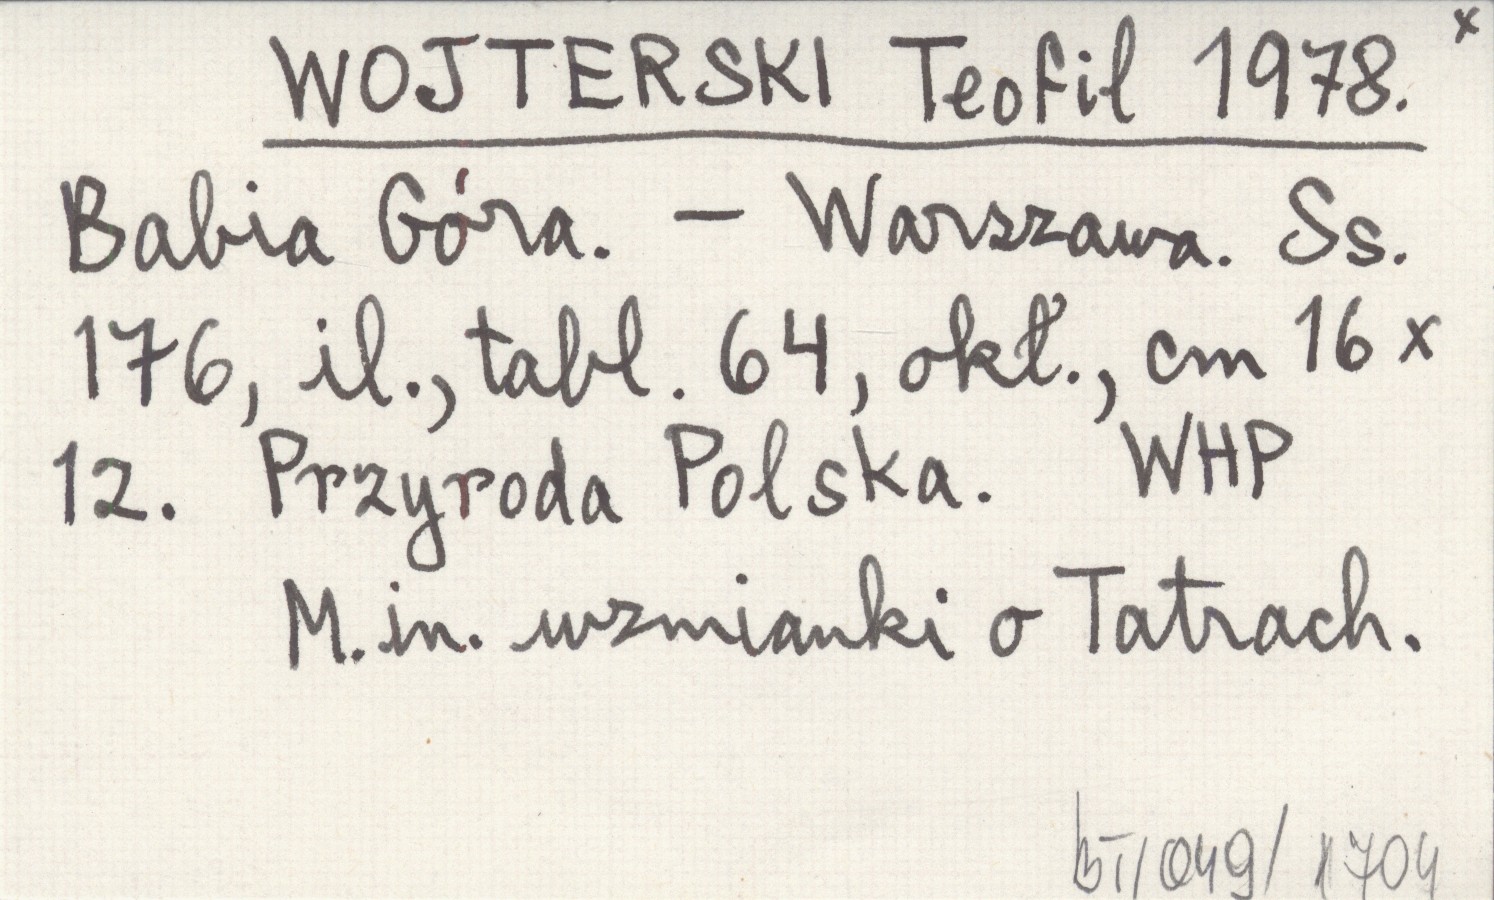 WOJTERSKI Teofil 1978. x
Babia Góra. — Warszawa. Ss.
176, il., tabl. 64, okł., cm 16 x
12. Przyroda Polska. WHP
M.in. wzmianki o Tatrach.
bT/049/1704